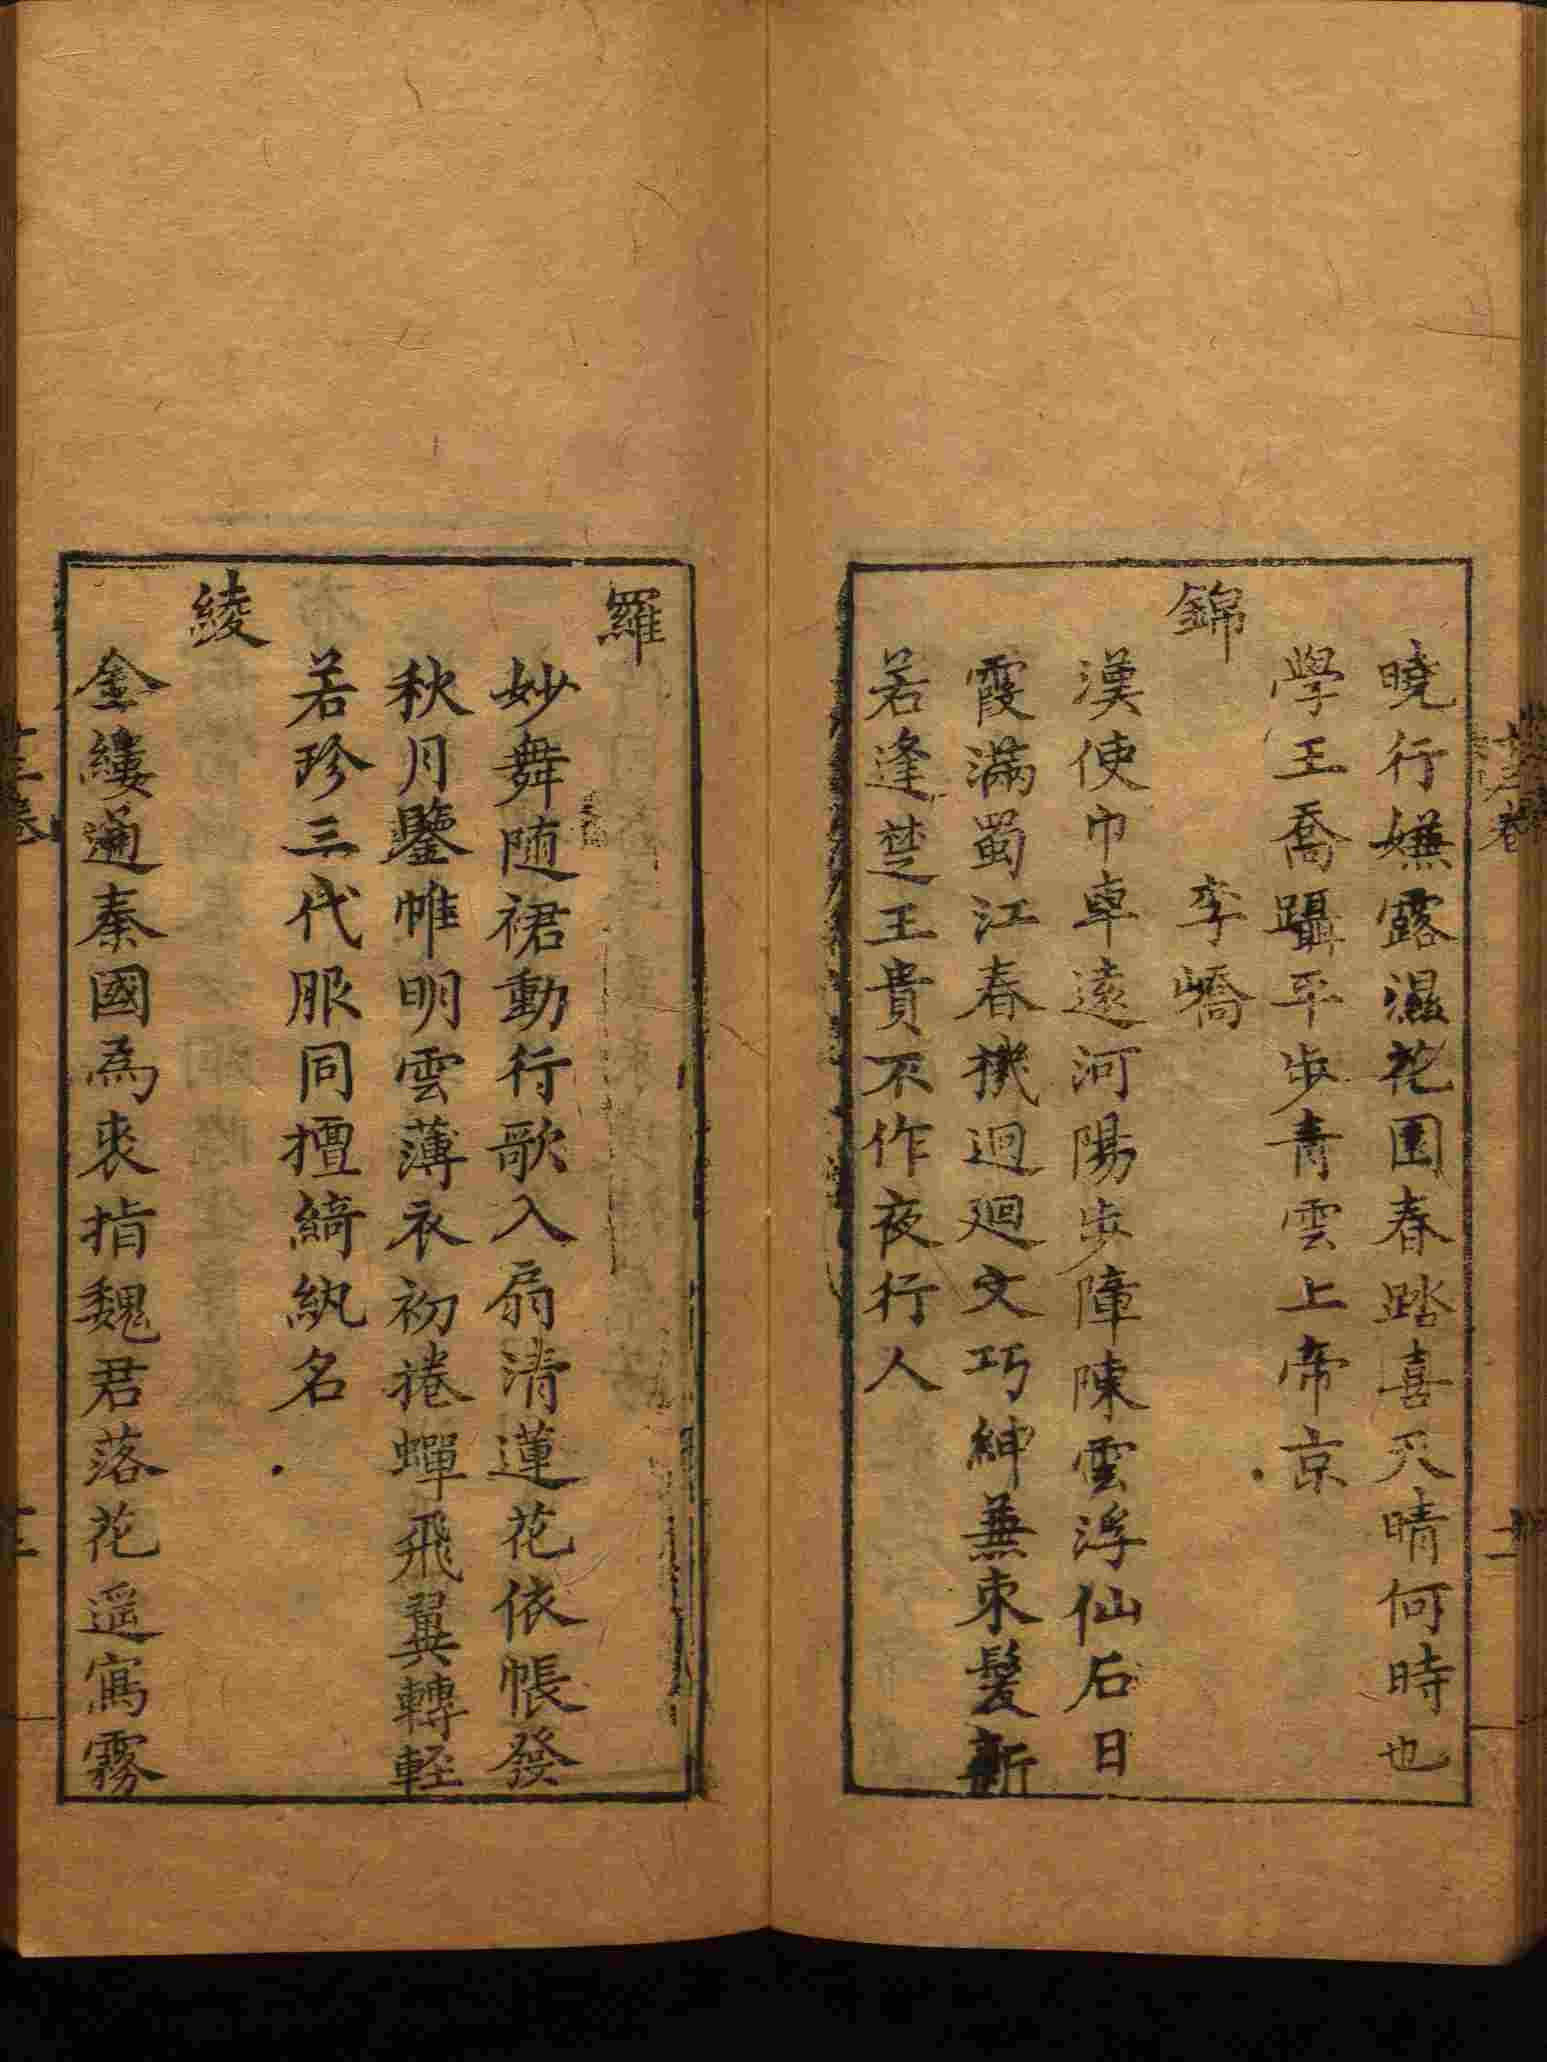 曉行嫌露濕花園春踏喜天晴何時也
學王喬躡平步青雲上帝京
錦 李嶠
漢使巾車遠河陽步障陳雲浮仙石日
霞滿蜀江春機迥廻文巧紳兼束髮新
若逢楚王貴不作夜行人
羅
妙舞随裙動行歌入扇清蓮花依帳發
秋月鑒帷明雲薄衣初捲蟬飛翼轉軽
若珍三代服同擅綺紈名
綾
金縷通秦國為裘指魏君落花遥寫霧